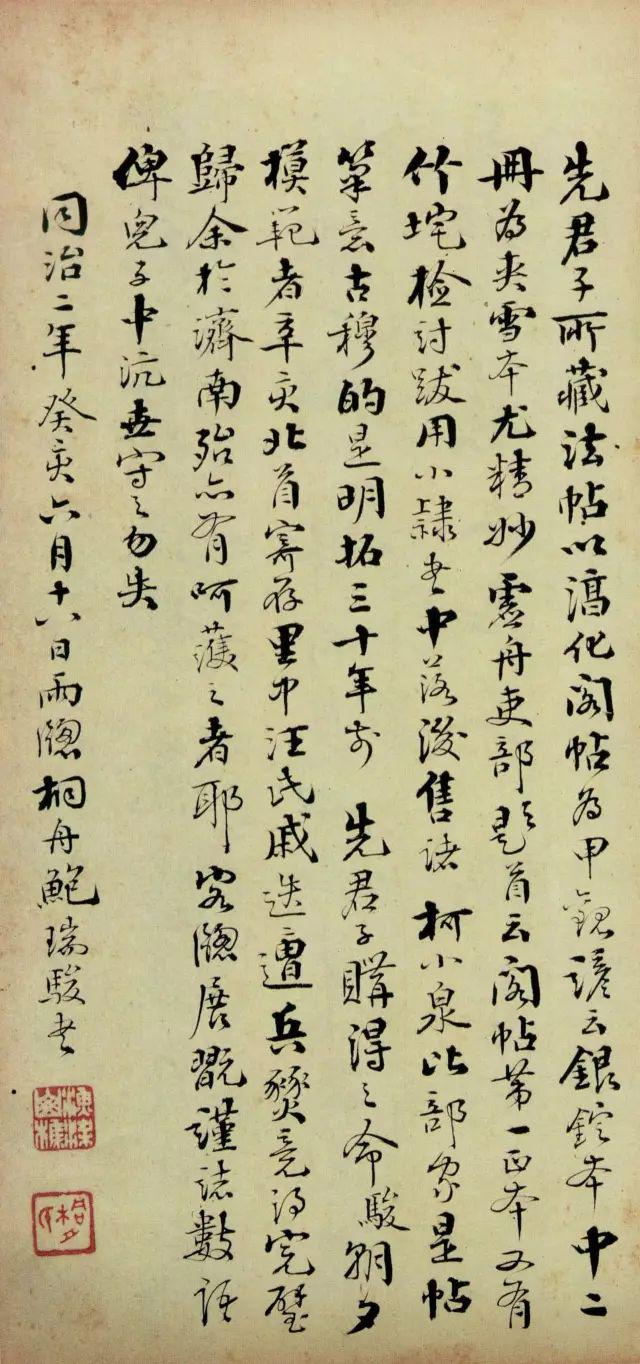 先君子所藏法帖以淳化阁帖為甲觀諺云銀錠本中二
冊為夾雪本尤精妙虛舟吏部題首云阁帖苐一正本又有
竹垞检討跋用小隸書中落後售諸柯小泉比部家是帖
筆意古穆的是明拓三十年前先君子購得之命駿朝夕
模範者辛亥北首寄存里中汪氏戚迭遭兵燹竟得完璧
歸余於濟南殆亦有呵護之者耶客牕展翫謹誌數語
俾兒子中沆世守之勿失
同治二年癸亥六月十六日雨牕桐舟鮑瑞駿書